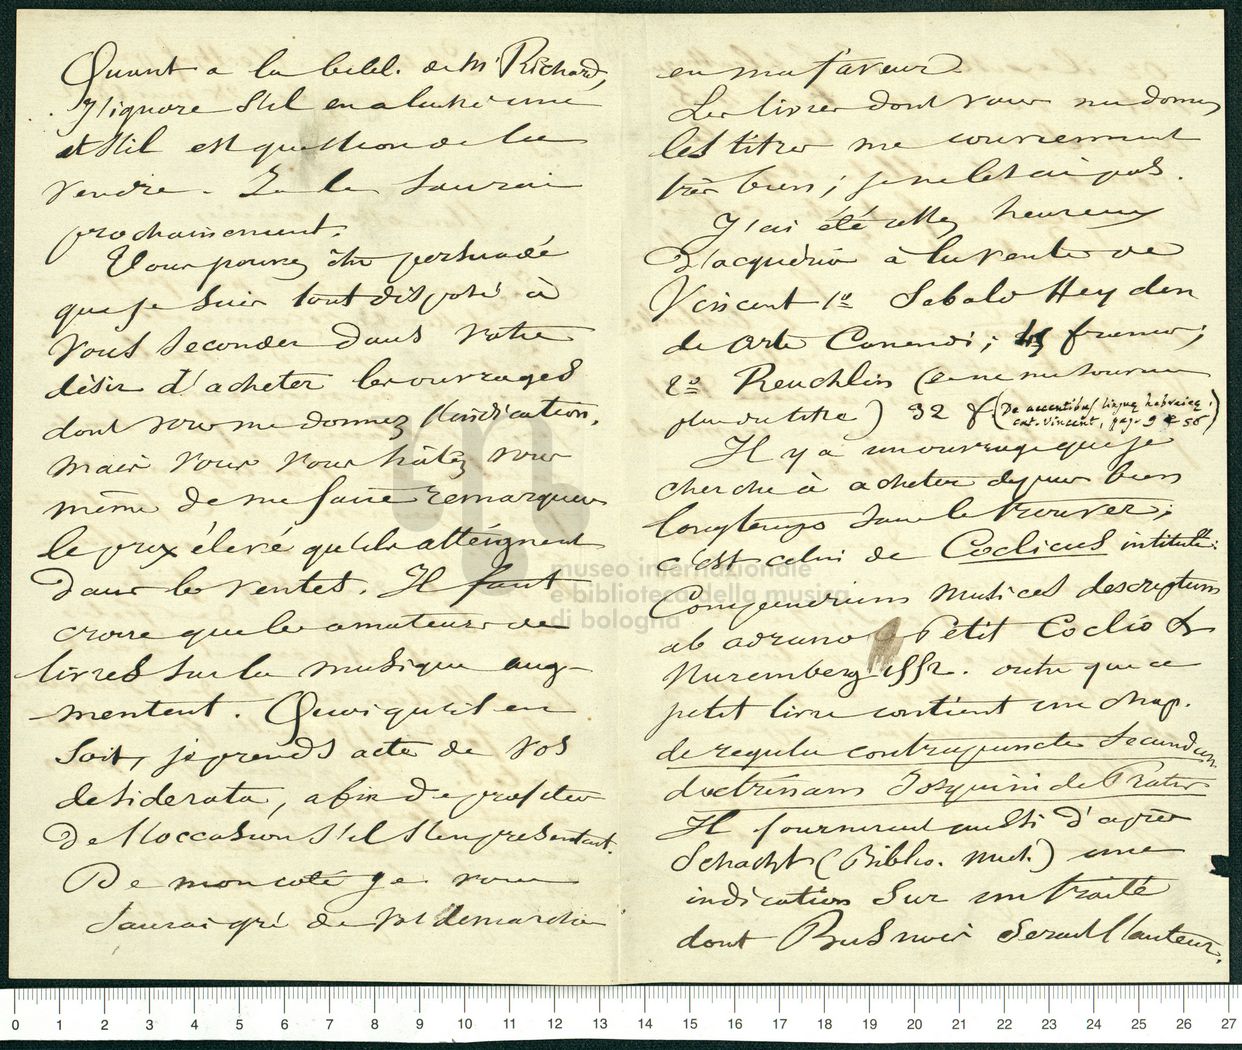 Quant a la bibl. de Mr Richard,
J'ignore s'il en a laissé une
et s'il est question de la
vendre. Je le saurai
prochainement.
Vous pouvez être persuadé
que je suis tout disposé à
vous seconder dans votre
désir d'acheter les ouvrages
dont vous me donnez l'indication,
mais vous vous hâtez vous
même de me faire remarquer
le prix élevé qu'ils atteignent
dans les ventes. Il faut
croire que les amateurs de
livres sur la musique aug-
mentent. Quoiqu'il en
soit, je prends acte de vos
desiderata, afin de profiter
de l'occasion s'il s'en présentait.
De mon coté je vous
saurai gré de vos démarches
en ma faveur.
Les livres dont vous me donnez
les titres me conviennent
très bien; je ne les ai pas.
J'ai été assez heureux
d'acquérir à la vente de
Vincent 1º Sebald Heyden
de Arte Canendi; francs;
2º Reuchlin (je ne me souviens
plus du titre) 32 f (De accentibus linguę hebraicę.
cat. Vincent, pag. 9 56)
Il y a un ouvrage que je
cherche à acheter depuis bien
longtemps sans le trouver;
c'est celui de Coclicus intitulé:
Compendium Musices descriptum
ab adriano Petit Coclio &
Nuremberg 1552. outre que ce
petit livre contient un chap.
de regula contrapuncti secundum
doctrinam Josquini de Pratis
Il fournirait aussi d'après
Schacht (Biblio. Mus.) une
indication sur un traité
dont Busnois serait l'auteur.
museo internazionale
e biblioteca della musica
di bologna
0 1 2 3 4 5 6 7 8 9 10 11 12 13 14 15 16 17 18 19 20 21 22 23 24 25 26 27